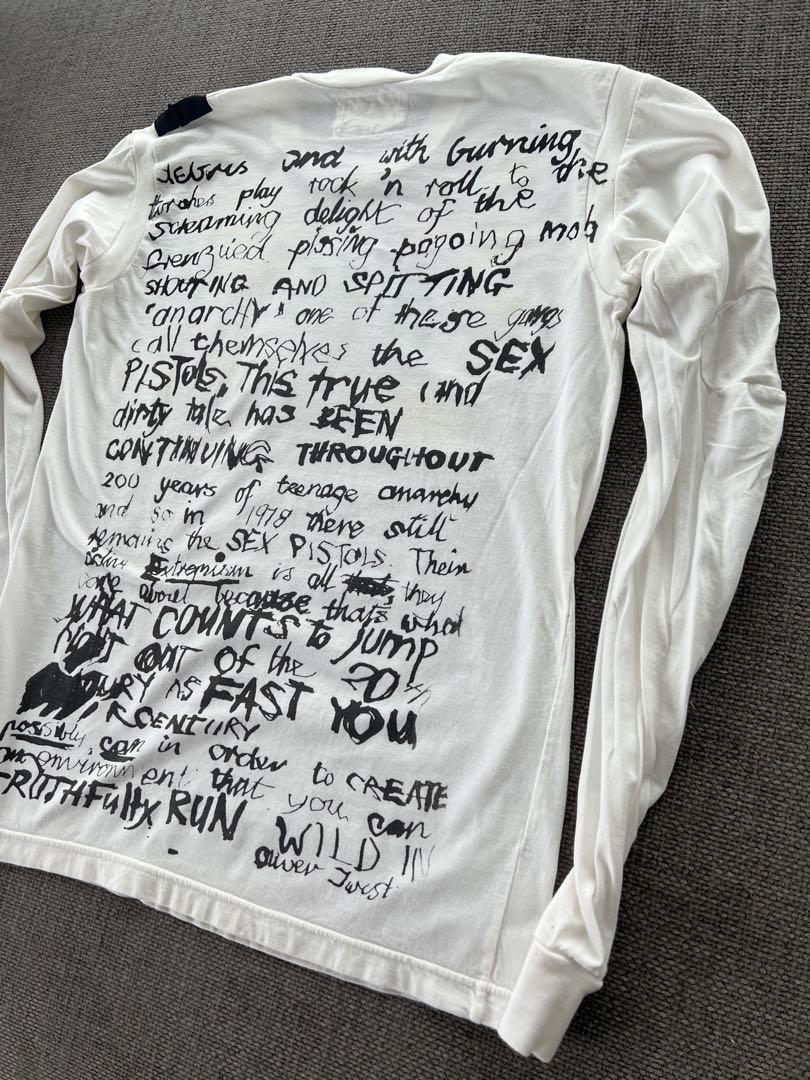 and with burning
torches play rock 'n roll to the
screaming delight of the
frenzied pissing pogoing mob
SHOUTING AND SPITTING
'anarchy' one of these gangs
call themselves the SEX
PISTOLS, This true and
dirty tale has BEEN
CONTINUING THROUGHOUT
200 years of teenage anarchy
and so in 1978 there still
remains the SEX PISTOLS. Their
active Extremism is all they
care about because that's what
WHAT COUNTS to JUMP
OUT OF the 20th
AS FAST YOU
CENTURY
possibly can in order to CREATE
an environment that you can
TRUTHFULLY RUN WILD IN
Oliver Twist